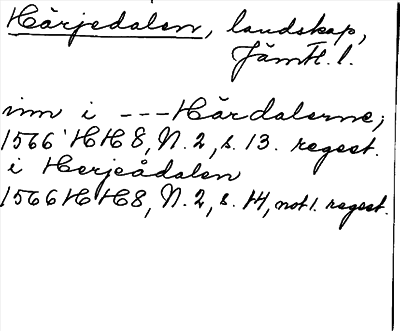 Härjedalen, landskap,
Jämtl. l.
inn i --- Härdalerne;
1566 HH 8, N. 2, s. 13. regest.
i Herjeådalen
1566 HH 8, N. 2, s. 14, not 1. regest.